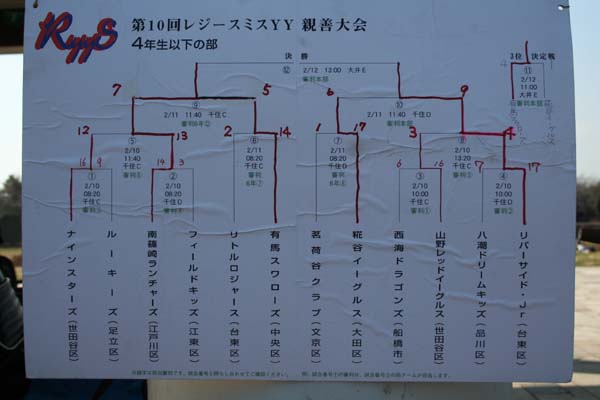 RyyS
第10回レジースミスYY 親善大会
4年生以下の部
決 勝
⑫
2/12 13:00 大井E
審判本部
3位 決定戦
⑪
2/12
11:00
大井E
審判本部
7
5
6
9
⑨
2/11 11:40 千住C
審判6年②
⑩
2/11 11:40 千住D
審判本部
12
13
2
14
1
17
3
4
⑤
2/10
11:40
千住C
審判⑤
⑥
2/11
08:20
千住C
審判
6年⑦
⑦
2/11
08:20
千住D
審判
6年⑧
⑧
2/10
13:20
千住C
審判③
16
9
14
3
6
16
7
17
①
2/10
08:20
千住C
②
2/10
08:20
千住D
③
2/10
10:00
千住C
審判①
④
2/10
10:00
千住D
審判②
ナインスターズ(世田谷区)
ルーキーズ(足立区)
南篠崎ランチャーズ(江戸川区)
フィールドキッズ(江東区)
リトルロジャース(台東区)
有馬スワローズ(中央区)
茗荷谷クラブ(文京区)
糀谷イーグルス(大田区)
西海ドラゴンズ(船橋市)
山野レッドイーグルス(世田谷区)
八潮ドリームキッズ(品川区)
リバーサイド・Jr(台東区)